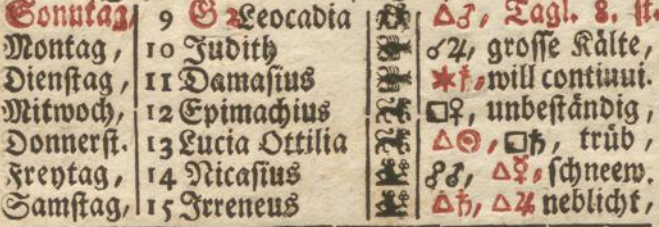 Sonntag, 9 G 2 Leocadia △♂, Tagl. 8. st.
Montag, 10 Judith ☌♃, grosse Kälte,
Dienstag, 11 Damasius ⚹♄, will continui.
Mitwoch, 12 Epimachius □♀, unbeständig,
Donnerst. 13 Lucia Ottilia △☉, □♄, trüb,
Freytag, 14 Nicasius ☍♂, △☿, schneew.
Samstag, 15 Irreneus △♄, △♃ neblicht,